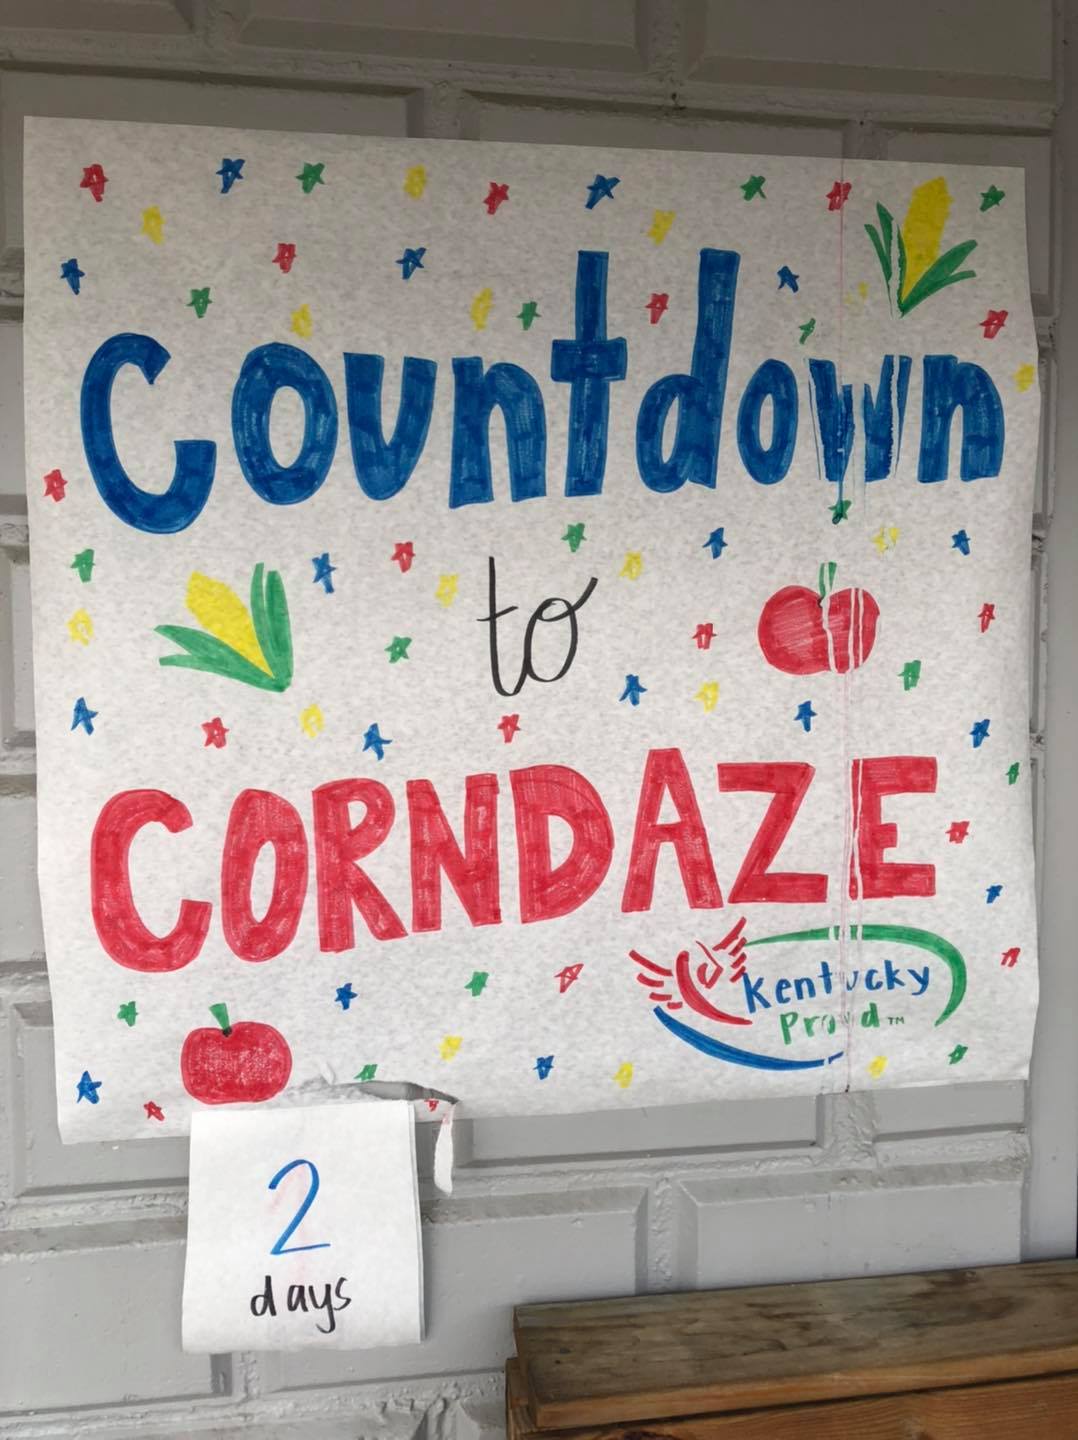 Countdown
to
CORNDAZE
Kentucky
Proud™
2
days